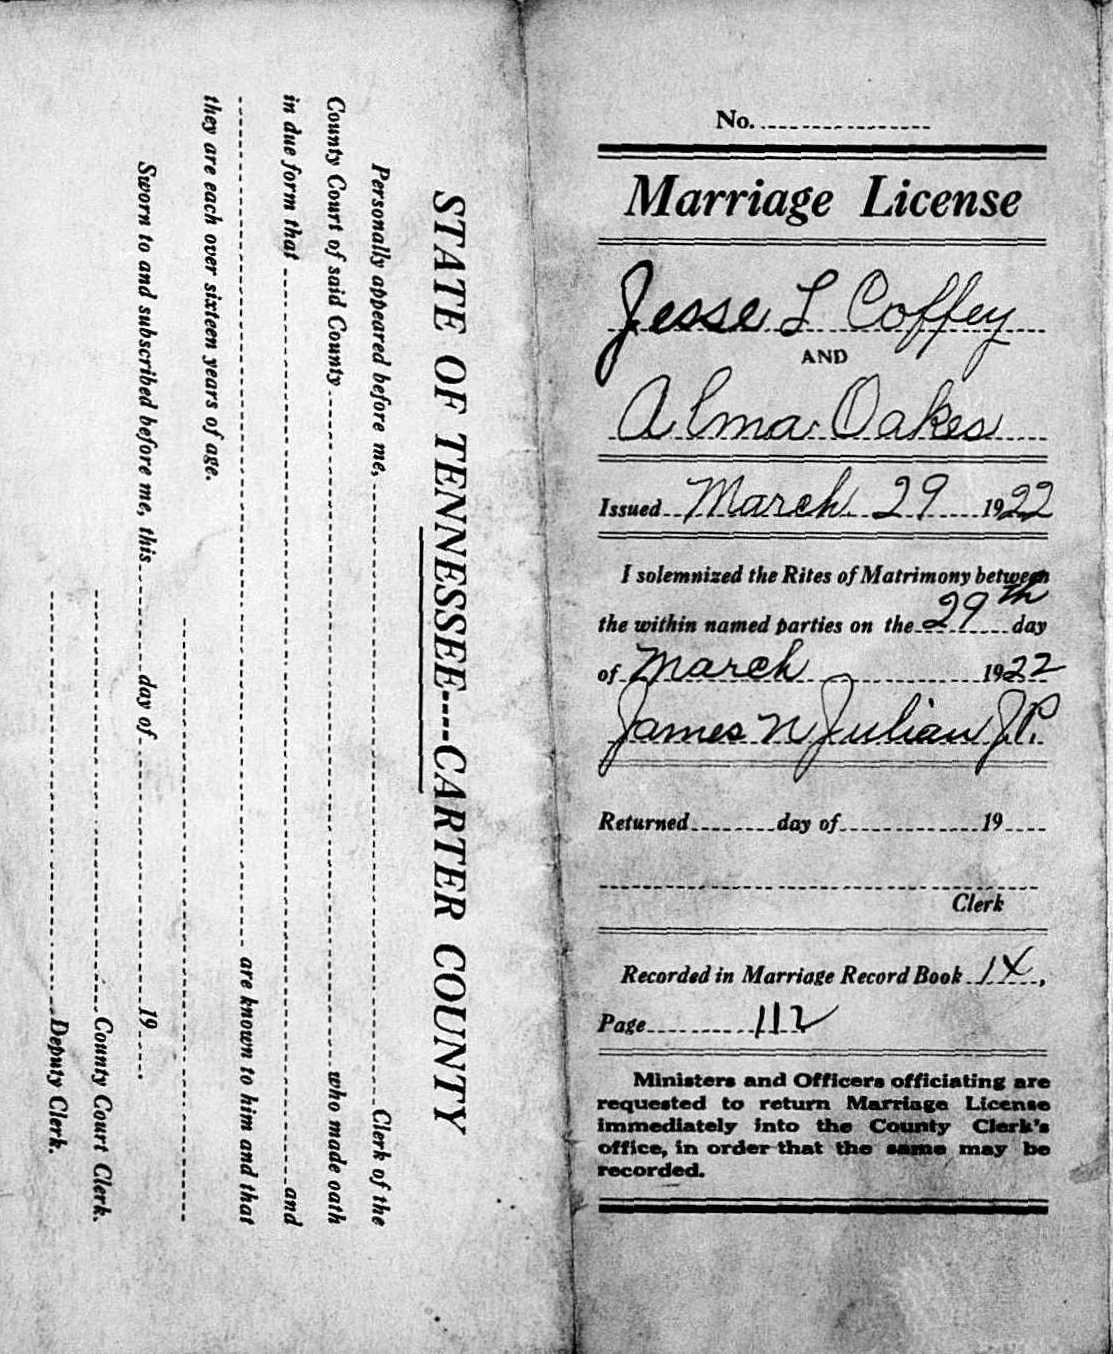 STATE OF TENNESSEE----CARTER COUNTY
Personally appeared before me, Clerk of the
County Court of said County who made oath
in due form that and
are known to him and that
they are each over sixteen years of age.
Sworn to and subscribed before me, this day of 19
County Court Clerk.
Deputy Clerk.
No.
Marriage License
Jesse L Coffey
AND
Alma Oakes
Issued March 29 1922
I solemnized the Rites of Matrimony between
the within named parties on the 29th day
of March 1922
James N Julian J.P.
Returned day of 19
Clerk
Recorded in Marriage Record Book 14,
Page 112
Ministers and Officers officiating are
requested to return Marriage License
immediately into the County Clerk's
office, in order that the same may be
recorded.